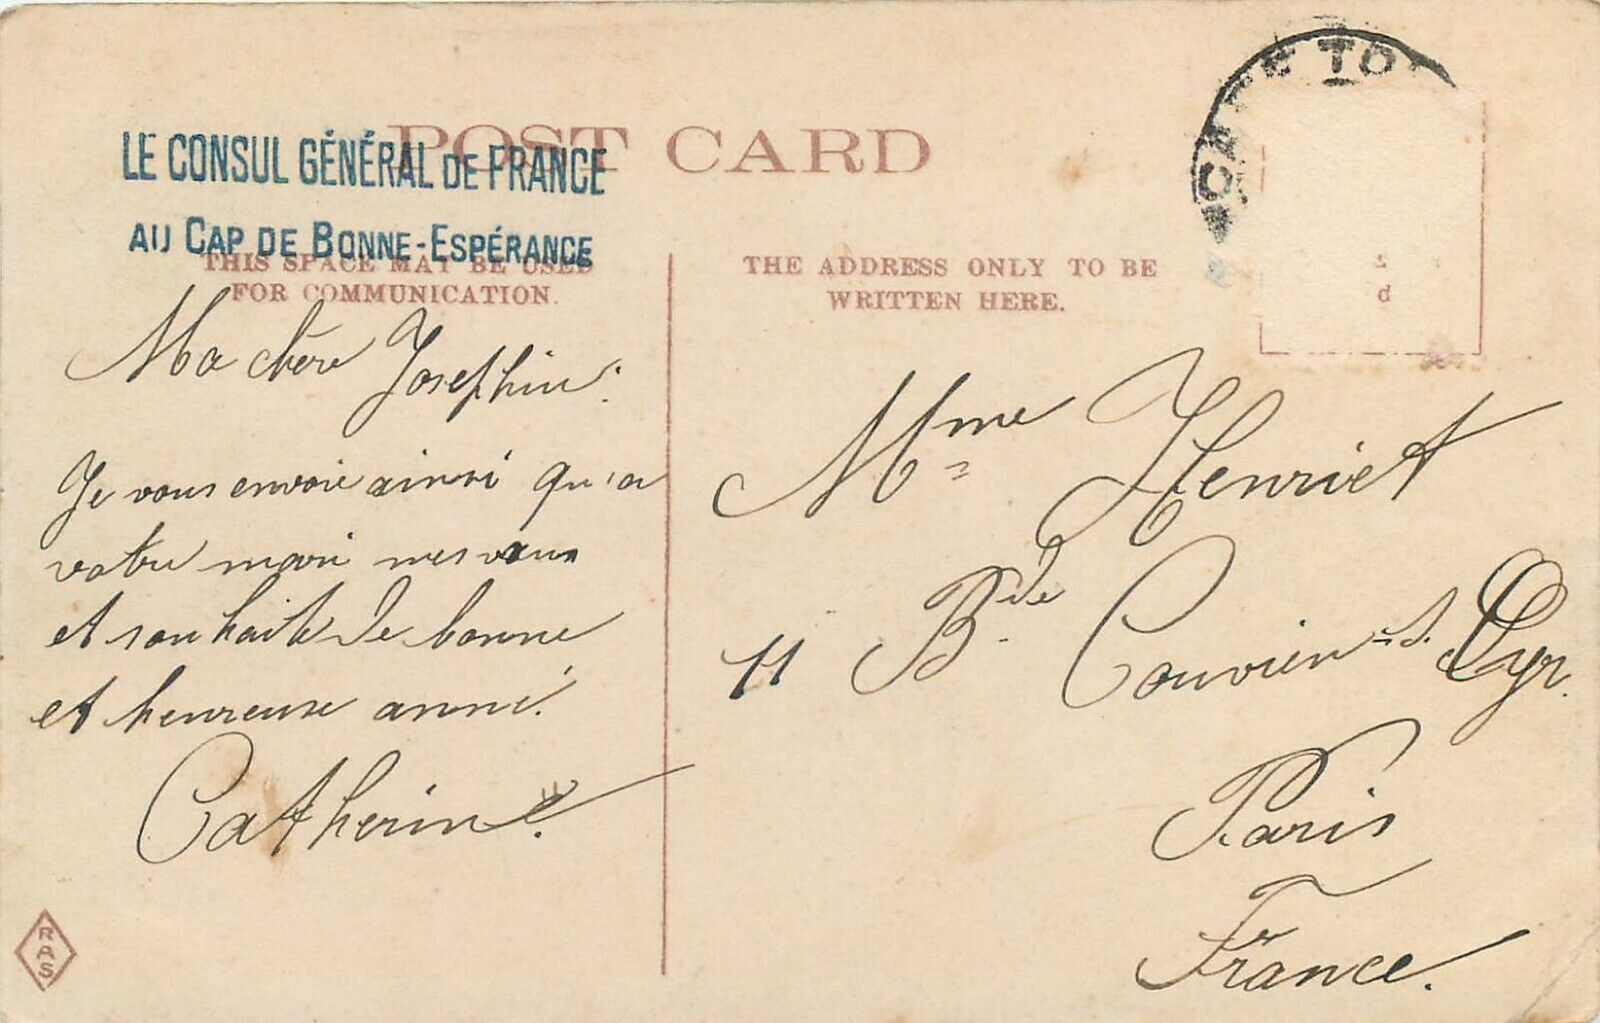 POST CARD
LE CONSUL GÉNÉRAL DE FRANCE
AU CAP DE BONNE-ESPÉRANCE
THIS SPACE MAY BE USED
FOR COMMUNICATION.
Ma chère Josephine.
Je vous envoie ainsi qu'a
votre mari mes vœux
et souhaits de bonne
et heureuse anné.
Catherine.
RAS
CAPE TO
THE ADDRESS ONLY TO BE
WRITTEN HERE.
d
Mme Henriet
11 Bde Gouvion-St. Cyr.
Paris
France.